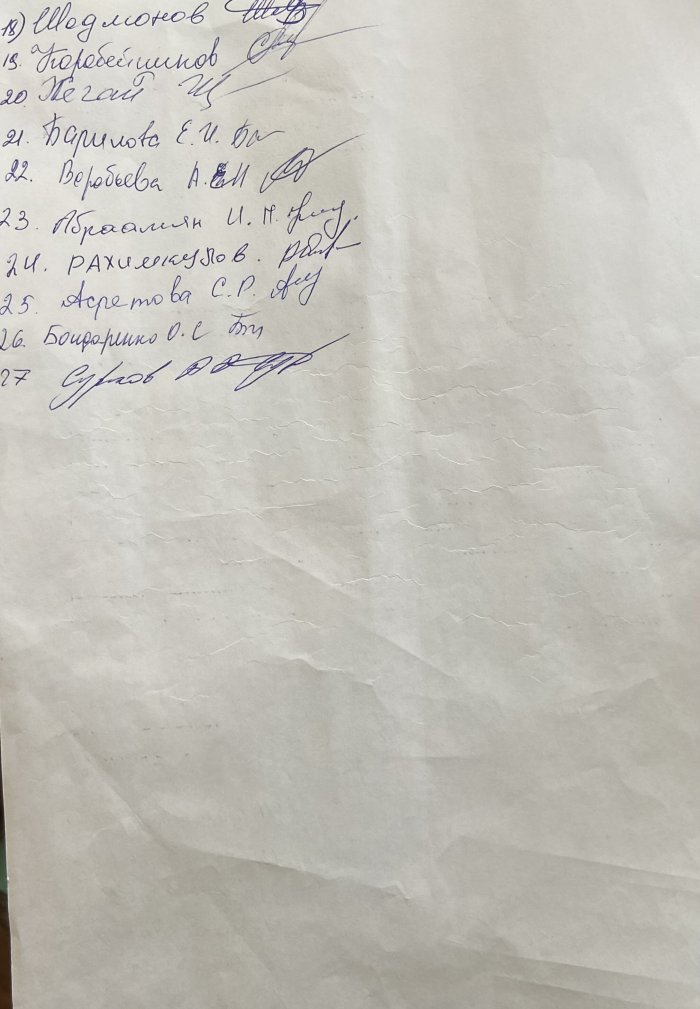 18) Шодмонов
19. Коробейников
20 Хегай
21. Барилова Е. И.
22. Воробьева А.
23. Абраамян И. М.
24. РАХИМКУЛОВ.
25. Асретова С. Р.
26. Бондаренко О. С
27 Сурков